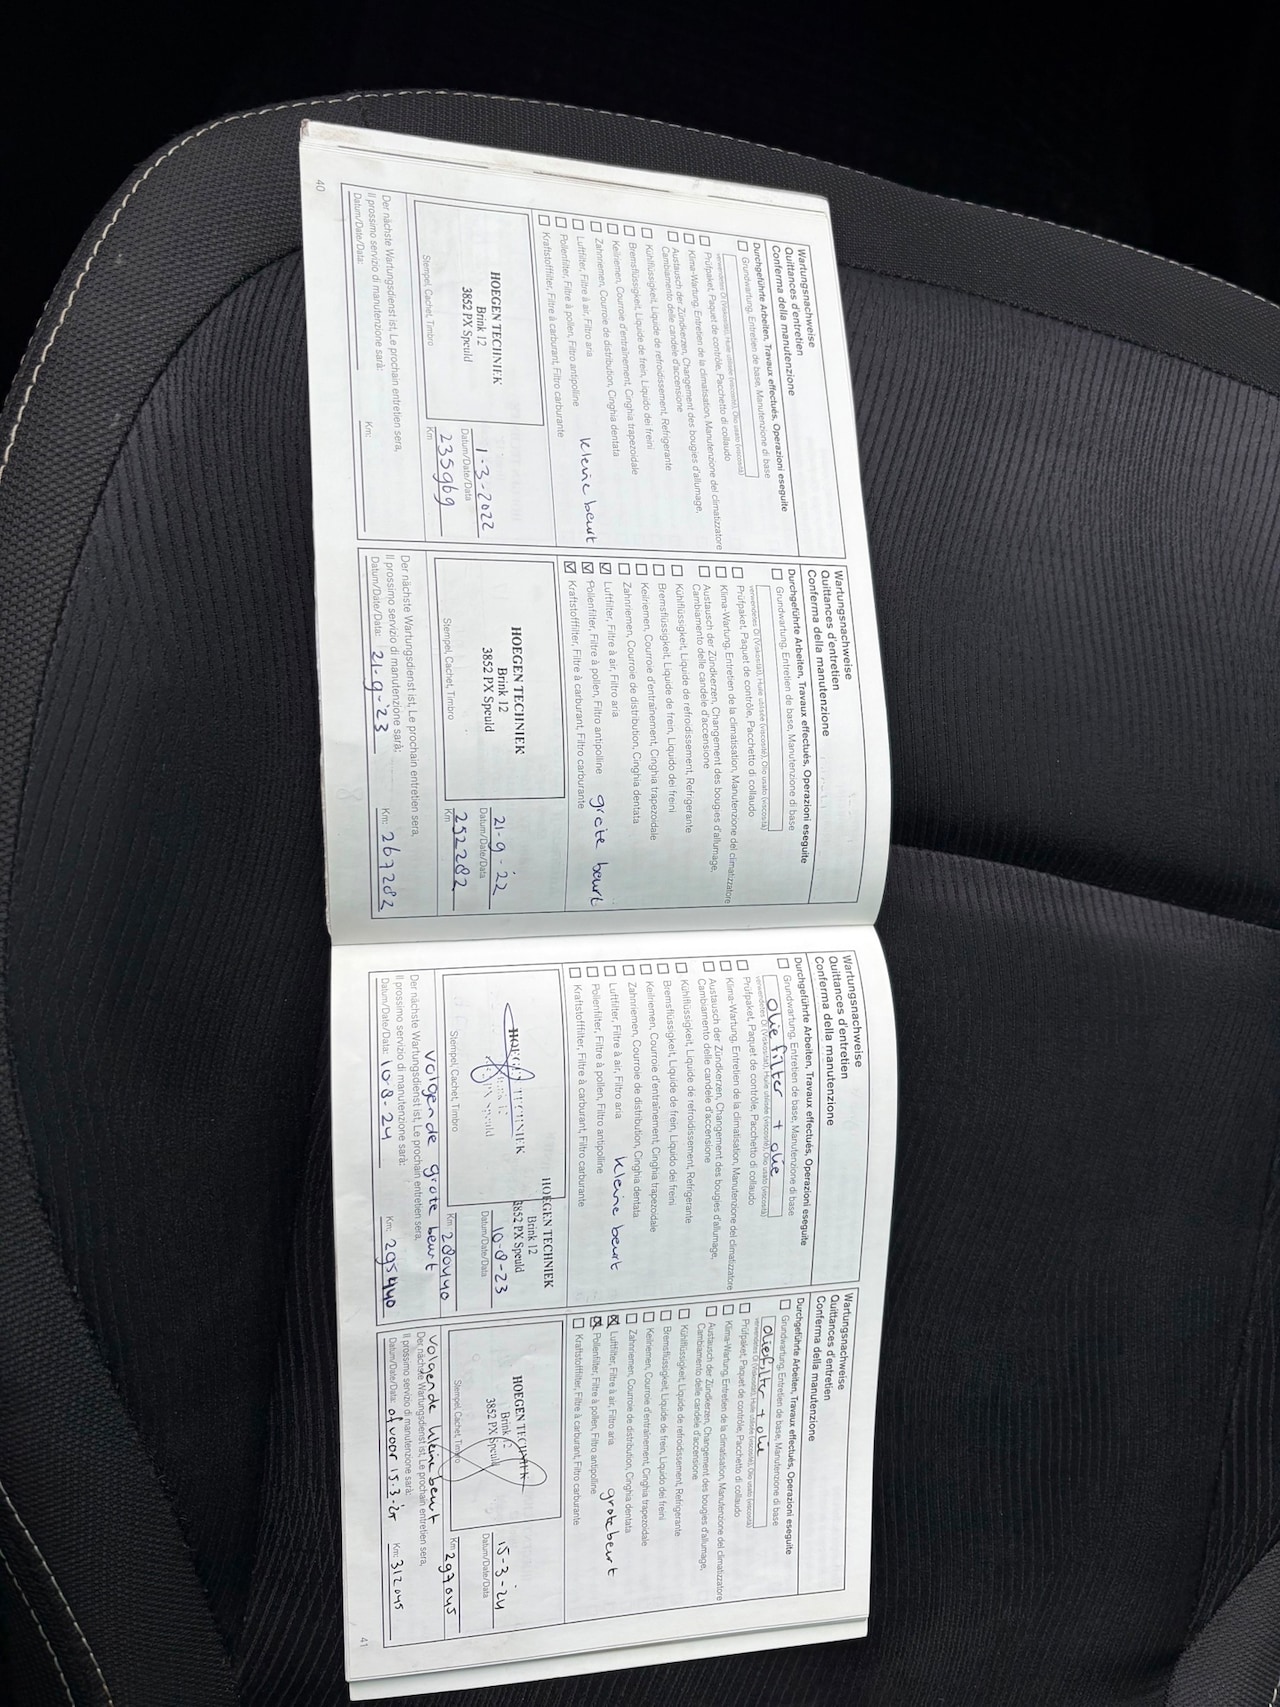 Wartungsnachweise
Quittances d'entretien
Conferma della manutenzione
Durchgeführte Arbeiten, Travaux effectués, Operazioni eseguite
Grundwartung, Entretien de base, Manutenzione di base
verwendetes Öl (Viskosität), Huile utilisée (viscosité), Olio usato (viscosità)
Prüfpaket, Paquet de contrôle, Pacchetto di collaudo
Klima-Wartung, Entretien de la climatisation, Manutenzione del climatizzatore
Austausch der Zündkerzen, Changement des bougies d'allumage,
Cambiamento delle candele d'accensione
Kühlflüssigkeit, Liquide de refroidissement, Refrigerante
Bremsflüssigkeit, Liquide de frein, Liquido dei freini
Keilriemen, Courroie d'entraînement, Cinghia trapezoidale
Zahnriemen, Courroie de distribution, Cinghia dentata
Luftfilter, Filtre à air, Filtro aria
Pollenfilter, Filtre à pollen, Filtro antipolline
Kraftstofffilter, Filtre à carburant, Filtro carburante
kleine beurt
HOEGEN TECHNIEK
Brink 12
3852 PX Speuld
Stempel, Cachet, Timbro
1-3-2022
Datum/Date/Data
235969
Km
Der nächste Wartungsdienst ist, Le prochain entretien sera,
Il prossimo servizio di manutenzione sarà:
Datum/Date/Data:
Km:
40
Wartungsnachweise
Quittances d'entretien
Conferma della manutenzione
Durchgeführte Arbeiten, Travaux effectués, Operazioni eseguite
Grundwartung, Entretien de base, Manutenzione di base
verwendetes Öl (Viskosität), Huile utilisée (viscosité), Olio usato (viscosità)
Prüfpaket, Paquet de contrôle, Pacchetto di collaudo
Klima-Wartung, Entretien de la climatisation, Manutenzione del climatizzatore
Austausch der Zündkerzen, Changement des bougies d'allumage,
Cambiamento delle candele d'accensione
Kühlflüssigkeit, Liquide de refroidissement, Refrigerante
Bremsflüssigkeit, Liquide de frein, Liquido dei freini
Keilriemen, Courroie d'entraînement, Cinghia trapezoidale
Zahnriemen, Courroie de distribution, Cinghia dentata
Luftfilter, Filtre à air, Filtro aria
Pollenfilter, Filtre à pollen, Filtro antipolline
Kraftstofffilter, Filtre à carburant, Filtro carburante
grote beurt
HOEGEN TECHNIEK
Brink 12
3852 PX Speuld
Stempel, Cachet, Timbro
21-9-'22
Datum/Date/Data
252282
Km
Der nächste Wartungsdienst ist, Le prochain entretien sera,
Il prossimo servizio di manutenzione sarà:
Datum/Date/Data: 21-9-'23 Km: 267282
Wartungsnachweise
Quittances d'entretien
Conferma della manutenzione
Durchgeführte Arbeiten, Travaux effectués, Operazioni eseguite
Grundwartung, Entretien de base, Manutenzione di base
oliefilter + olie
verwendetes Öl (Viskosität), Huile utilisée (viscosité), Olio usato (viscosità)
Prüfpaket, Paquet de contrôle, Pacchetto di collaudo
Klima-Wartung, Entretien de la climatisation, Manutenzione del climatizzatore
Austausch der Zündkerzen, Changement des bougies d'allumage,
Cambiamento delle candele d'accensione
Kühlflüssigkeit, Liquide de refroidissement, Refrigerante
Bremsflüssigkeit, Liquide de frein, Liquido dei freini
Keilriemen, Courroie d'entraînement, Cinghia trapezoidale
Zahnriemen, Courroie de distribution, Cinghia dentata
Luftfilter, Filtre à air, Filtro aria
Pollenfilter, Filtre à pollen, Filtro antipolline
Kraftstofffilter, Filtre à carburant, Filtro carburante
kleine beurt
HOEGEN TECHNIEK
Brink 12
3852 PX Speuld
HOEGEN TECHNIEK
Speuld
Stempel, Cachet, Timbro
10-8-23
Datum/Date/Data
Km 280440
Volgende grote beurt
Der nächste Wartungsdienst ist, Le prochain entretien sera,
Il prossimo servizio di manutenzione sarà:
Datum/Date/Data: 10-8-24 Km: 295440
Wartungsnachweise
Quittances d'entretien
Conferma della manutenzione
Durchgeführte Arbeiten, Travaux effectués, Operazioni eseguite
Grundwartung, Entretien de base, Manutenzione di base
oliefilter + olie
verwendetes Öl (Viskosität), Huile utilisée (viscosité), Olio usato (viscosità)
Prüfpaket, Paquet de contrôle, Pacchetto di collaudo
Klima-Wartung, Entretien de la climatisation, Manutenzione del climatizzatore
Austausch der Zündkerzen, Changement des bougies d'allumage,
Cambiamento delle candele d'accensione
Kühlflüssigkeit, Liquide de refroidissement, Refrigerante
Bremsflüssigkeit, Liquide de frein, Liquido dei freini
Keilriemen, Courroie d'entraînement, Cinghia trapezoidale
Zahnriemen, Courroie de distribution, Cinghia dentata
Luftfilter, Filtre à air, Filtro aria
Pollenfilter, Filtre à pollen, Filtro antipolline
Kraftstofffilter, Filtre à carburant, Filtro carburante
grote beurt
HOEGEN TECHNIEK
Brink 12
3852 PX Speuld
Stempel, Cachet, Timbro
15-3-24
Datum/Date/Data
Km 297045
Volgende kleine beurt
Der nächste Wartungsdienst ist, Le prochain entretien sera,
Il prossimo servizio di manutenzione sarà:
Datum/Date/Data: of voor 15-3-'25 Km: 312045
41